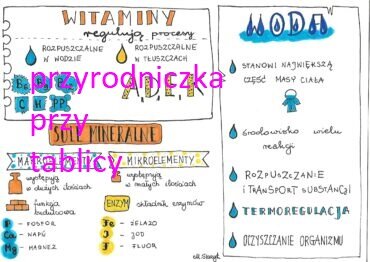 WITAMINY
regulują procesy
ROZPUSZCZALNE
W WODZIE
ROZPUSZCZALNE
W TŁUSZCZACH
C H PP
A D E K
przyrodniczka
przy
tablicy
SOLE MINERALNE
MAKROELEMENTY
występują
w dużych ilościach
funkcja
budulcowa
P - FOSFOR
Ca - WAPŃ
Mg - MAGNEZ
MIKROELEMENTY
występują
w małych ilościach
ENZYM składnik enzymów
Fe - ŻELAZO
J - JOD
F - FLUOR
WODA
STANOWI NAJWIĘKSZĄ
CZĘŚĆ MASY CIAŁA
środowisko wielu
reakcji
ROZPUSZCZANIE
I TRANSPORT SUBSTANCJI
TERMOREGULACJA
OCZYSZCZANIE ORGANIZMU